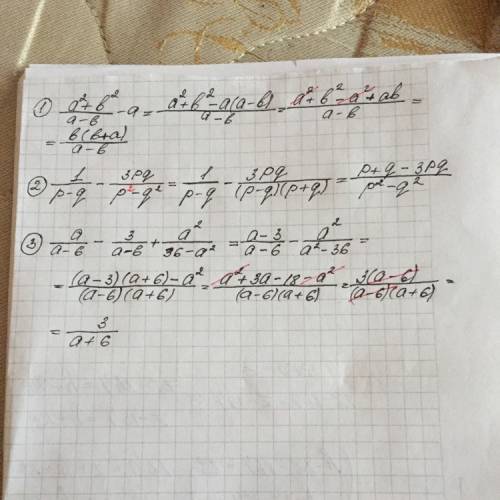 ① (a²+b²)/(a-b) - a = (a²+b²-a(a-b))/(a-b) = (a²+b²-a²+ab)/(a-b) =
= (b(b+a))/(a-b)
② 1/(p-q) - 3pq/(p²-q²) = 1/(p-q) - 3pq/((p-q)(p+q)) = (p+q-3pq)/(p²-q²)
③ a/(a-6) - 3/(a-6) + a²/(36-a²) = (a-3)/(a-6) - a²/(a²-36) =
= ((a-3)(a+6)-a²)/((a-6)(a+6)) = (a²+3a-18-a²)/((a-6)(a+6)) = (3(a-6))/((a-6)(a+6)) =
= 3/(a+6)